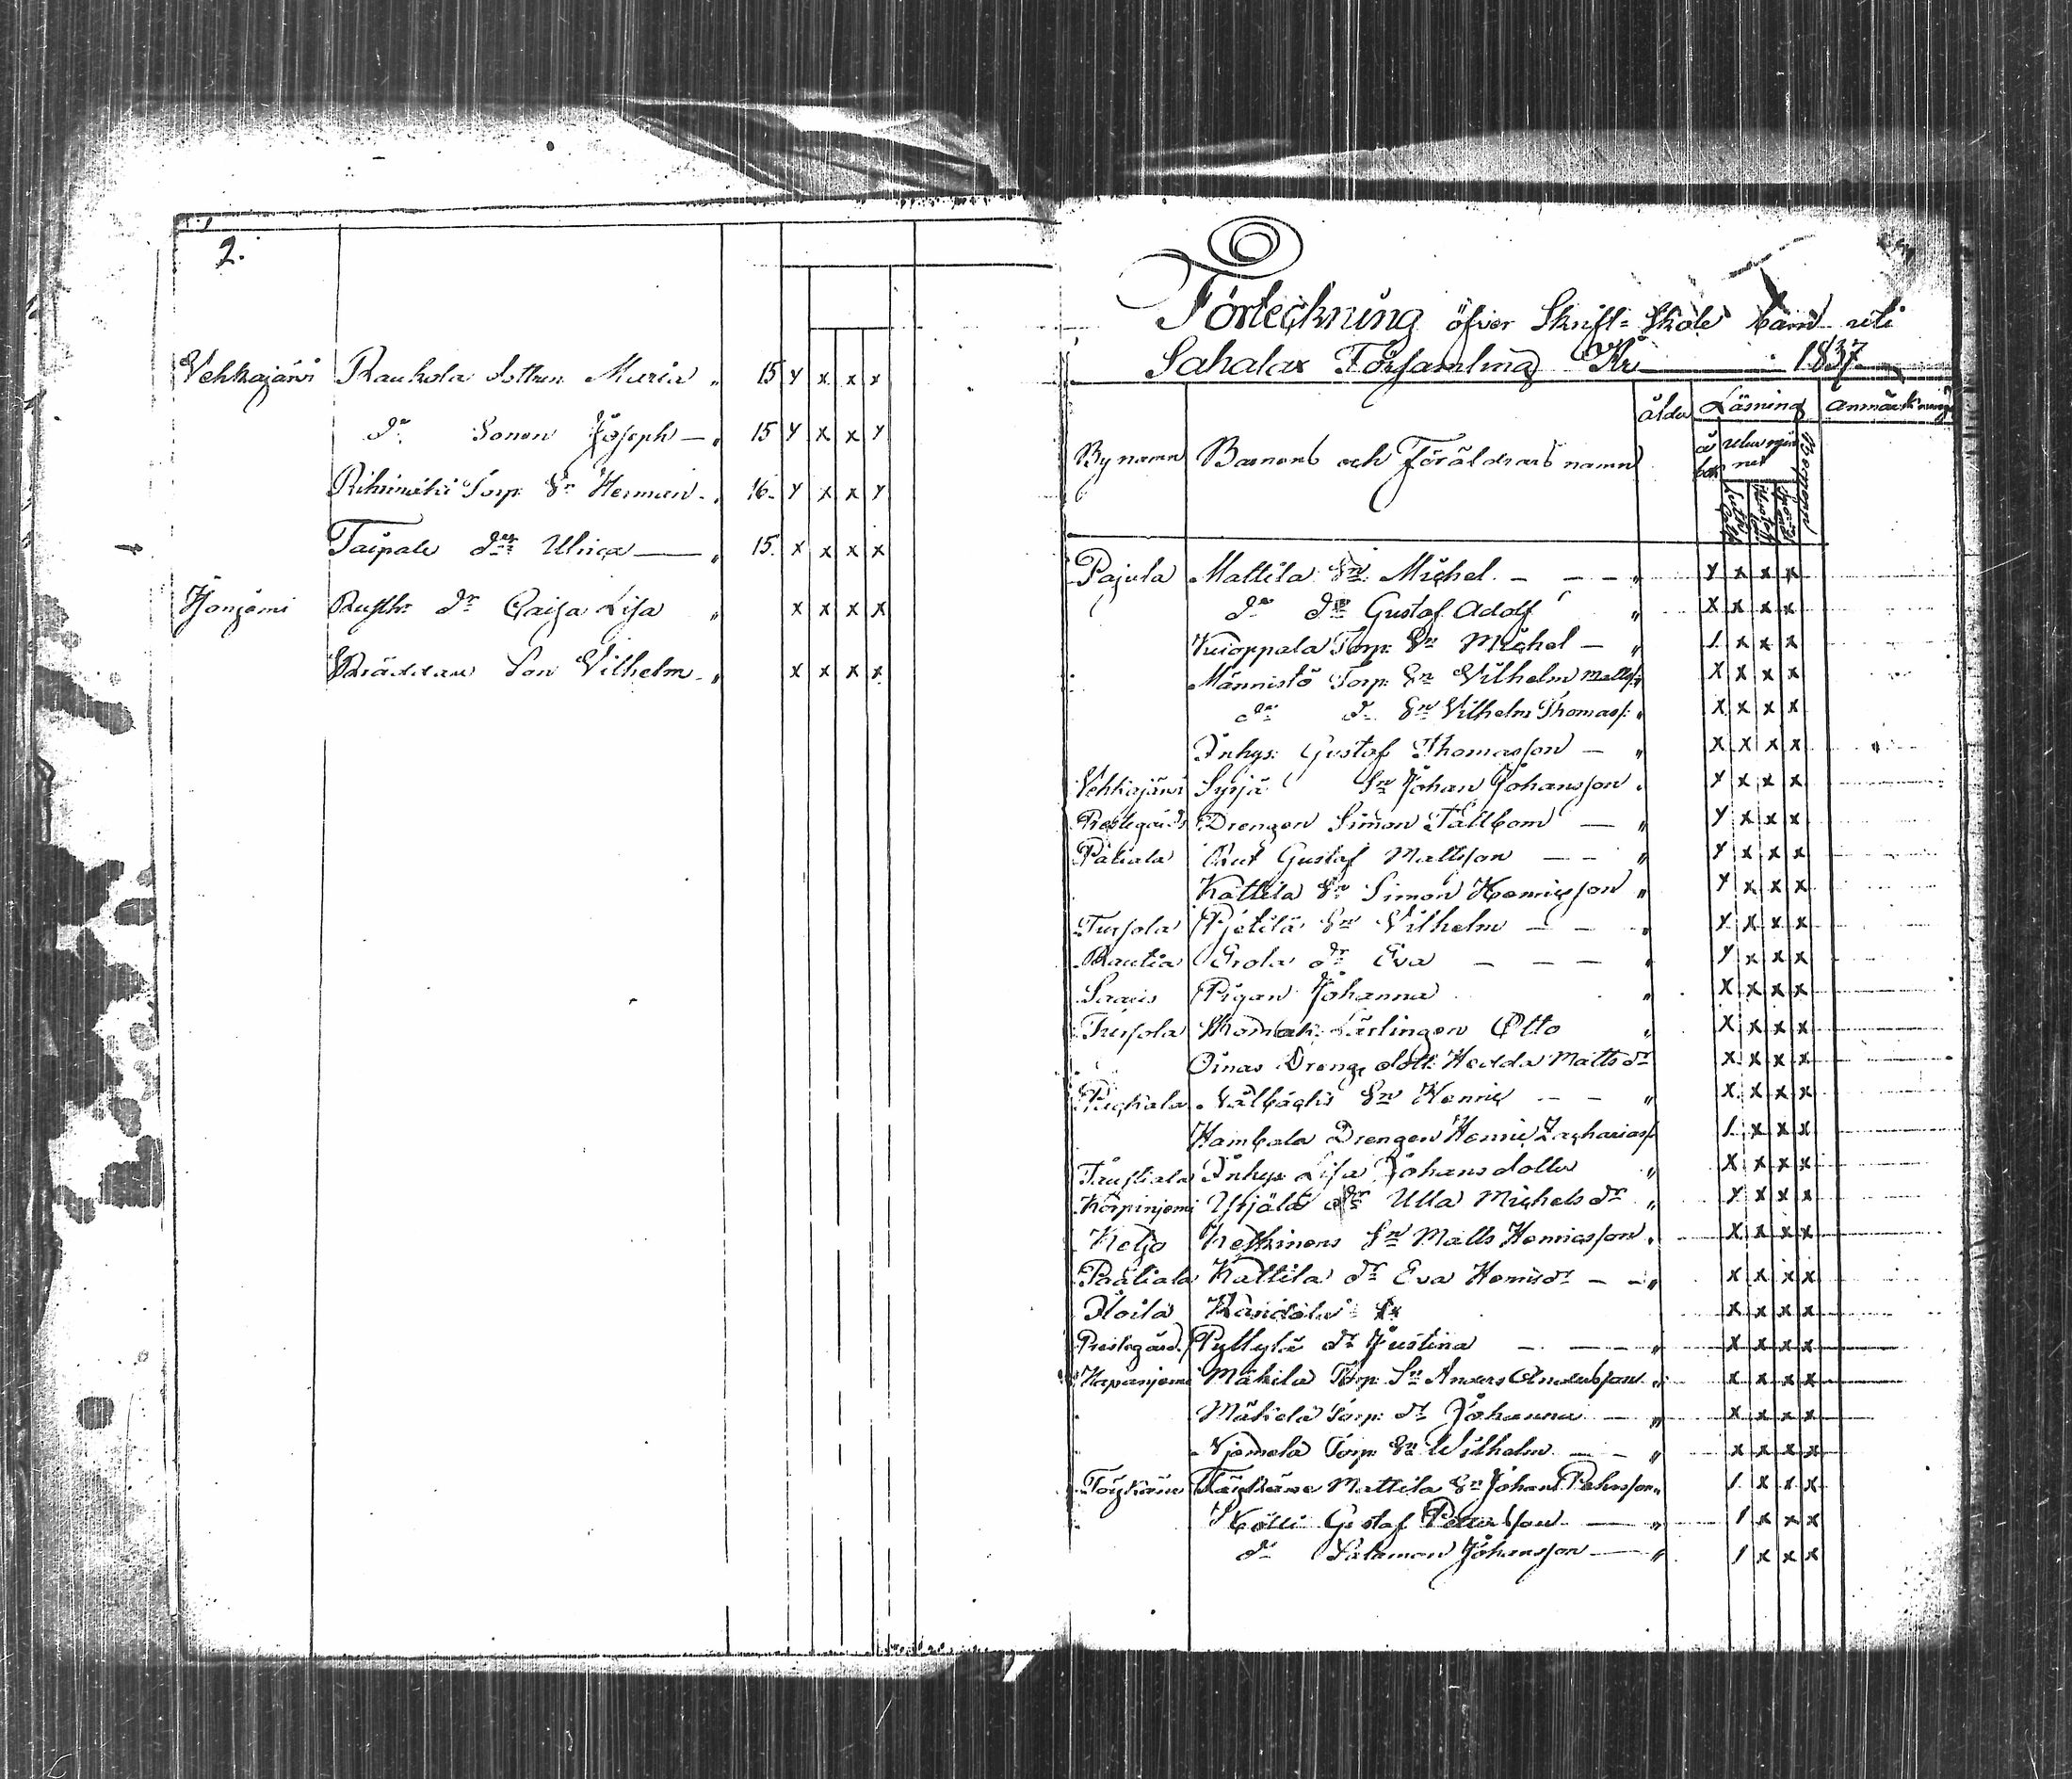 2.
Vehkajärvi Rauhola dottren Maria „ 15 y x x x
do Sonen Joseph — „ 15 y x x y
Rihimäki Torp Sn Herman „ 16 y x x y
Taipale dr Ulrica — „ 15. x x x x
Rusth. dr Cajsa Lisa „ x x x x
Son Vilhelm „ x x x x
Förteckning öfver Skrift-Skole barn uti
Sahalax Församling År 1837
By namn Barnens och Föräldrars namn ålder Läsning anmärkningar
i bok utur minnet
Pajula Mattila Sn Michel — — — „ y x x x
do do Gustaf Adolf „ x x x x
Kuoppala Torp. Sn Michel — „ 1 x x x
Männistö Torp. Sn Vilhelm Matts: x x x x
do do Sn Vilhelm Thomass: „ x x x x
Inhys: Gustaf Thomasson — „ x x x x
Vehkajärvi Syrjä Sn Johan Johansson „ y x x x
Prestegård Drengen Simon Tallbom — „ y x x x
Pakkala Gustaf Mattsson — — „ y x x x
Kattila Sn Simon Henricsson „ y x x x
Tursola Pietilä Sn Vilhelm — — „ y x x x
Rautia Erola dr Eva — — — „ y x x x
Saaris Pigan Johanna „ x x x x
Tursola Lärlingen Otto „ x x x x
Oinas Dreng dott. Hedda Matts dr x x x x
Sn Henric — — „ x x x x
Hambala Drengen Henric Zachariass: 1 x x x
Inhys Lisa Johans dotter „ x x x x
Korpinjemi Yljälä dr Ulla Michels dr „ y x x x
Keljo Keskinens Sn Matts Henricsson „ x x x x
Pakkala Kattila dr Eva Henrics dr — „ x x x x
Iloila x x x x
Prestegård Pyttylä dr Justina — — — „ x x x x
Hapanjemi Mäkilä Torp. Sn Anders Andersson „ x x x x
Mäkelä Torp. dr Johanna — „ x x x x
Torp. Sn Wilhelm — — „ x x x x
Mattila Sn Johan „ 1 x x x
Gustaf Pettersson — „ 1 x x x
do Salomon Johansson — „ 1 x x x